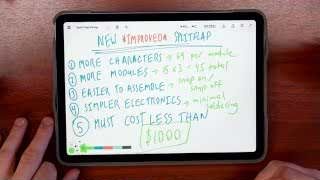 NEW *IMPROVED* SPLITFLAP
① MORE CHARACTERS → 64 per module
② MORE MODULES → 15 x 3 = 45 total
③ EASIER TO ASSEMBLE → snap on/
snap off
④ SIMPLER ELECTRONICS → minimal
soldering
⑤ MUST COST LESS THAN
$1000